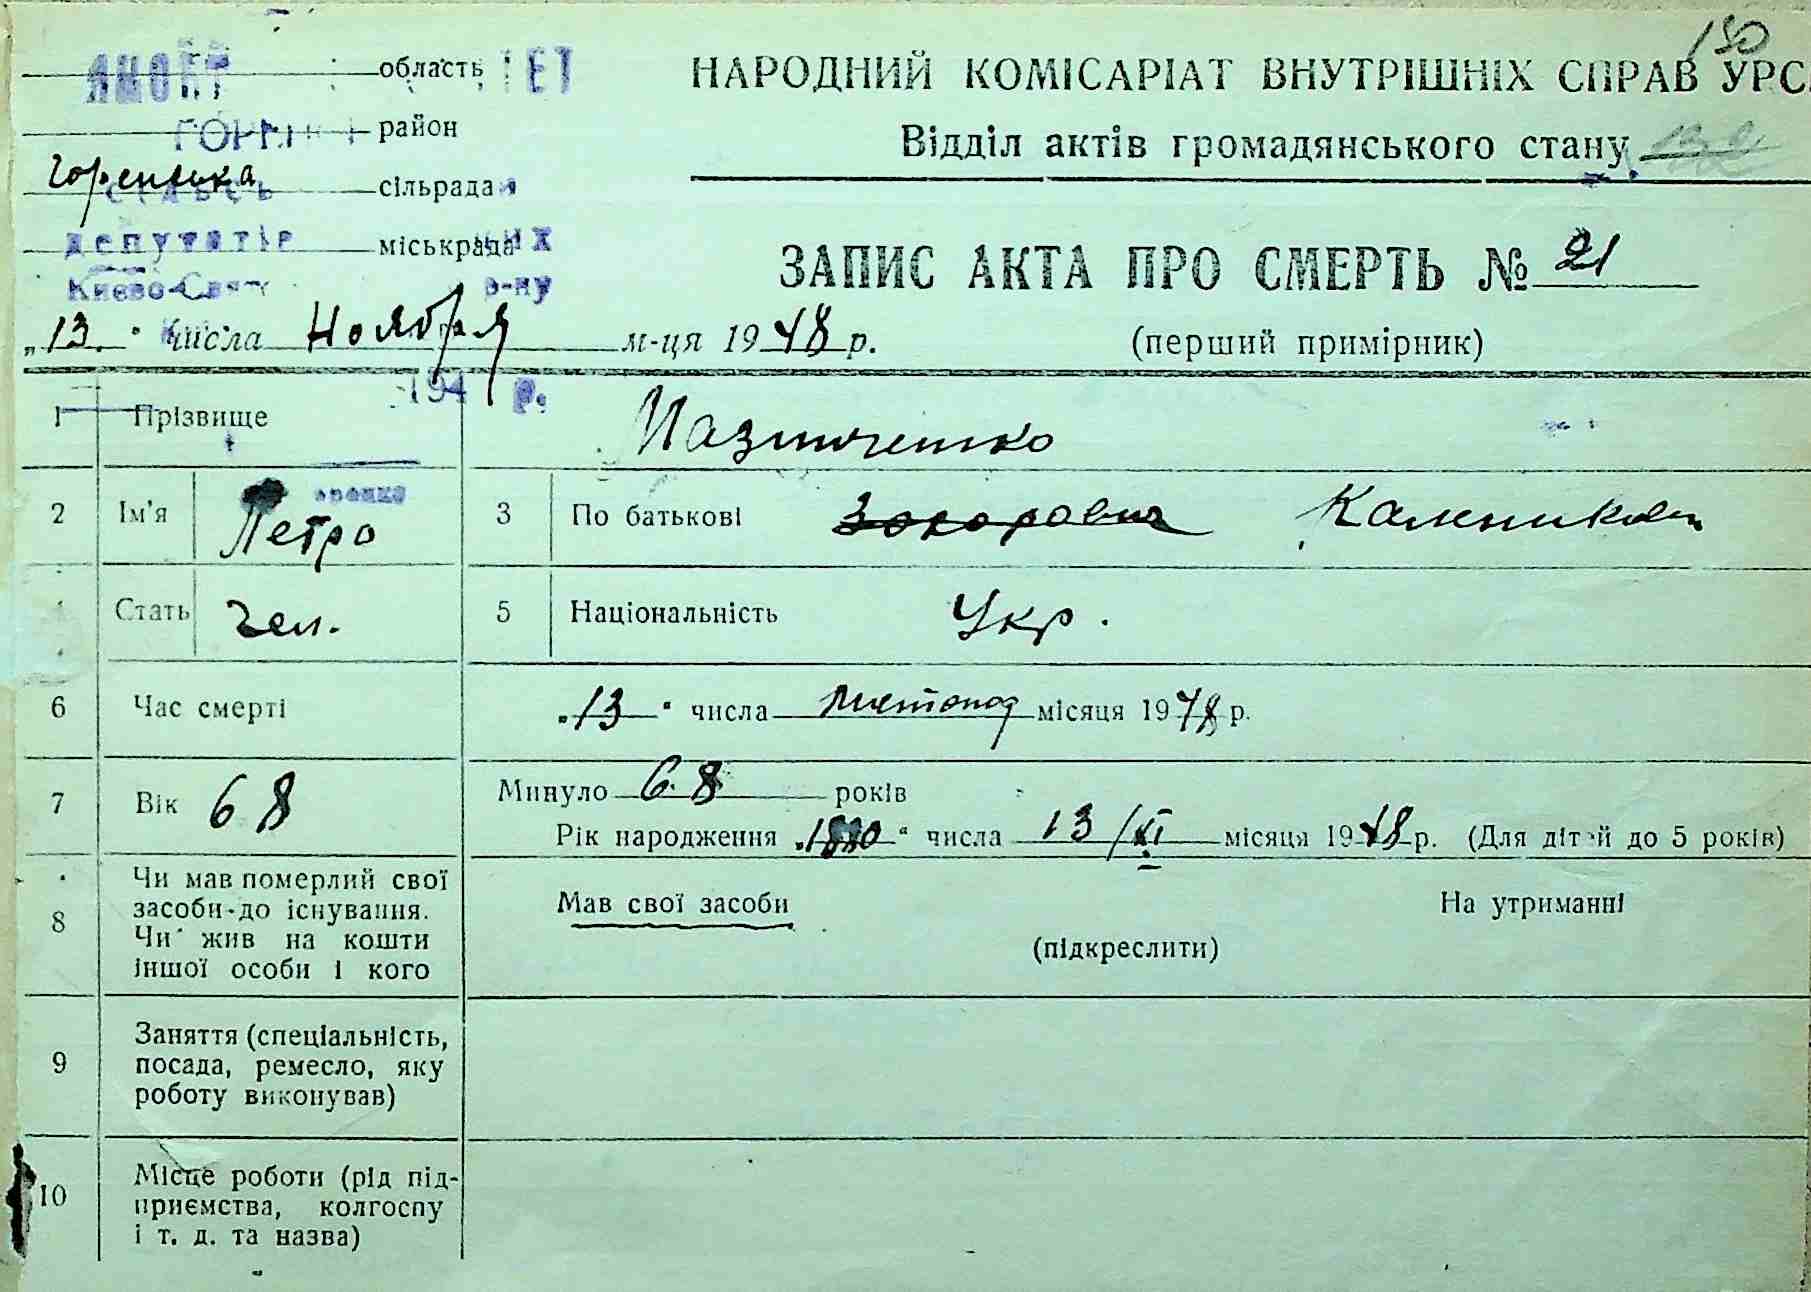 150
область
НАРОДНИЙ КОМІСАРІАТ ВНУТРІШНІХ СПРАВ УРСР
район
Відділ актів громадянського стану
Горенська сільрада
депутатів міськрада
Києво-Свят р-ну
ЗАПИС АКТА ПРО СМЕРТЬ № 21
„13“ числа Ноября м-ця 1948 р.
(перший примірник)
194 р.
1 Прізвище
2 Ім'я Петро 3 По батькові
Стать Чел. 5 Національність Укр.
6 Час смерті „13“ числа листопад місяця 1948 р.
7 Вік 68 Минуло 68 років
Рік народження „1880“ числа 13/XI місяця 1948 р. (Для дітей до 5 років)
8 Чи мав померлий свої
засоби до існування.
Чи жив на кошти
іншої особи і кого
Мав свої засоби На утриманні
(підкреслити)
9 Заняття (спеціальність,
посада, ремесло, яку
роботу виконував)
10 Місце роботи (рід під-
приємства, колгоспу
і т. д. та назва)